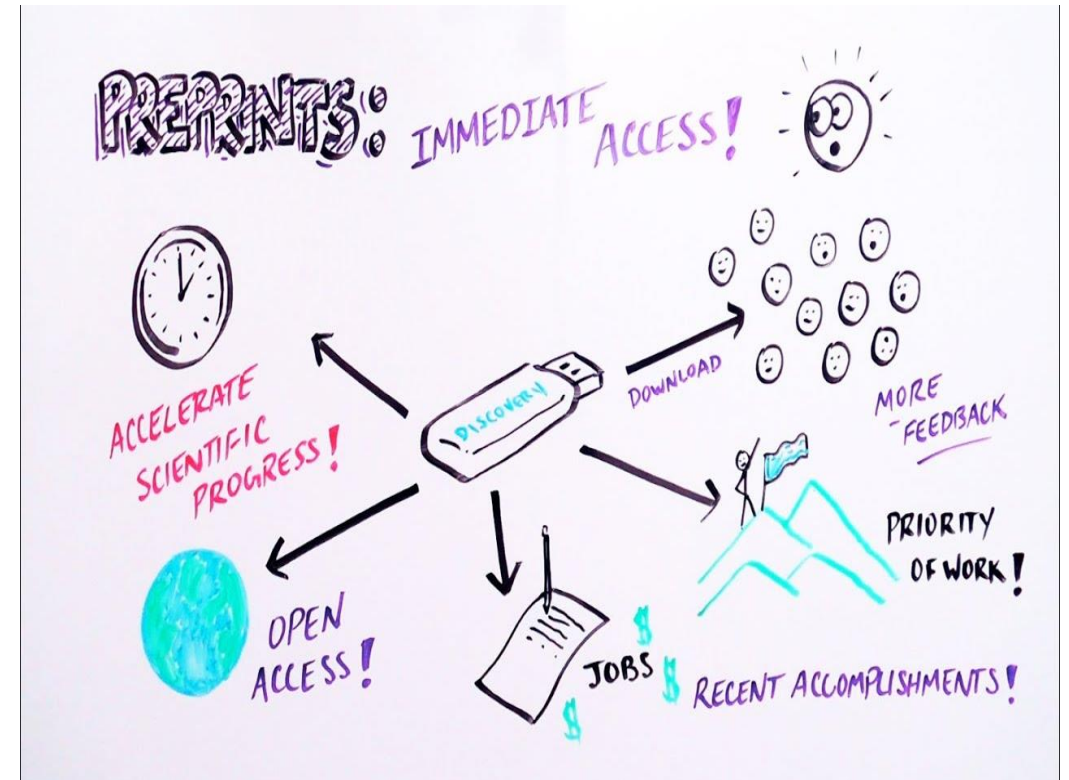 PREPRINTS: IMMEDIATE ACCESS!
ACCELERATE
SCIENTIFIC
PROGRESS!
DISCOVERY
DOWNLOAD
MORE
FEEDBACK
PRIORITY
OF WORK!
OPEN
ACCESS!
JOBS
$
$
$
RECENT ACCOMPLISHMENTS!